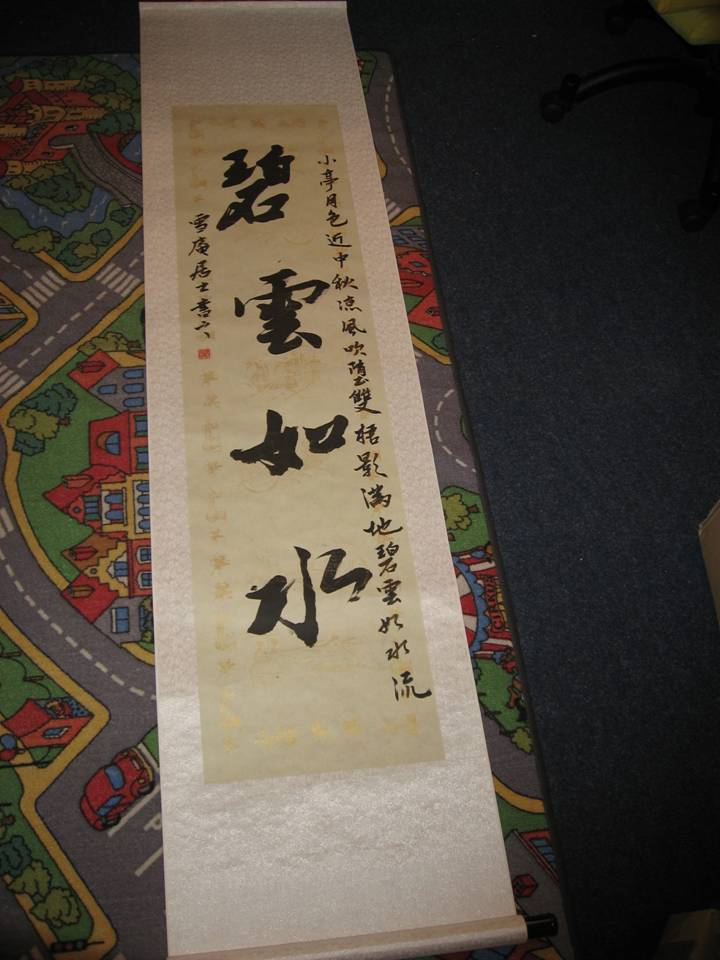 小亭月色近中秋涼風吹墮雙梧影滿地碧雲如水流
碧雲如水
雪庵居士書